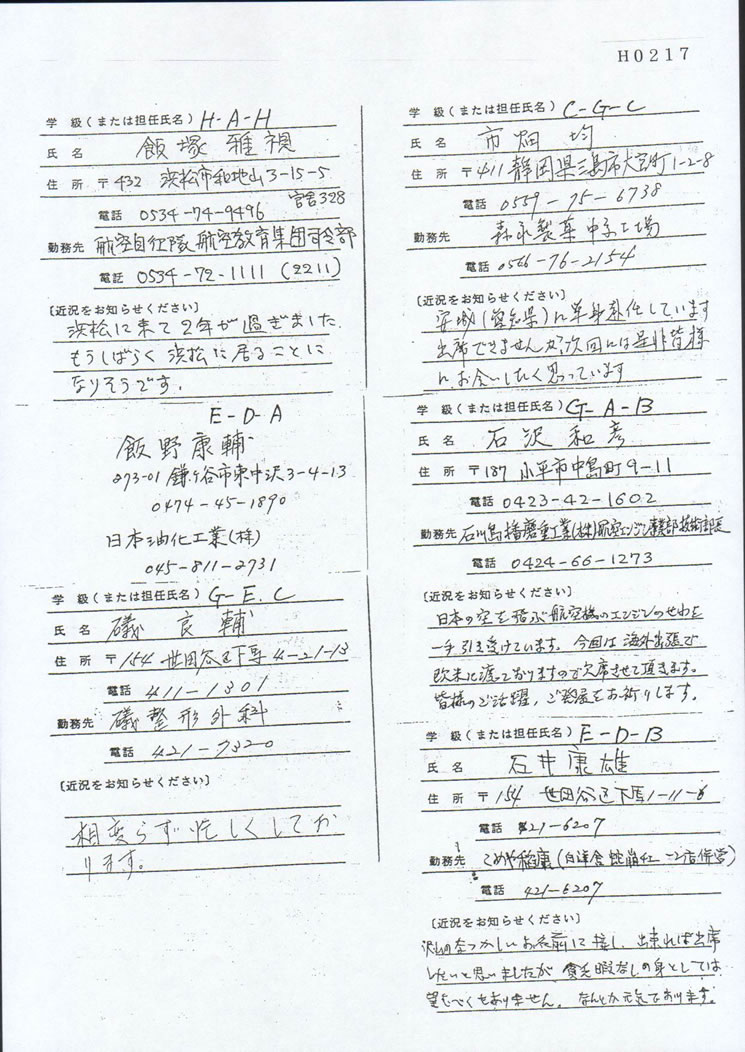 H0217
学級（または担任氏名）H-A-H
氏名 飯塚雅視
住所 〒432 浜松市和地山3-15-5
官舎328
電話 0534-74-9496
勤務先 航空自衛隊 航空教育集団司令部
電話 0534-72-1111 (2211)
〔近況をお知らせください〕
浜松に来て2年が過ぎました.
もうしばらく浜松に居ることに
なりそうです.
E-D-A
飯野康輔
273-01 鎌ヶ谷市東中沢3-4-13
0474-45-1890
日本油化工業(株)
045-811-2731
学級（または担任氏名）G-E.C
氏名 礒良輔
住所 〒154 世田谷区下馬4-21-13
電話 411-1301
勤務先 礒整形外科
電話 421-7320
〔近況をお知らせください〕
相変らず忙しくしてお
ります。
学級（または担任氏名）C-G-C
氏名 市畑 均
住所 〒411 静岡県三島市大宮町1-2-8
電話 0559-75-6738
勤務先 森永製菓 中京工場
電話 0566-76-2154
〔近況をお知らせください〕
安城(愛知県)に単身赴任しています
出席できませんが次回には是非皆様
にお会いしたく思っています
学級（または担任氏名）G-A-B
氏名 石沢和彦
住所 〒187 小平市中島町9-11
電話 0423-42-1602
勤務先 石川島播磨重工業(株)航空エンジン事業部技術部長
電話 0424-66-1273
〔近況をお知らせください〕
日本の空を飛ぶ航空機のエンジンのせわを
一手引き受けています. 今回は海外出張で
欧米に渡っておりますので欠席させて頂きます.
皆様のご活躍, ご発展をお祈りします.
学級（または担任氏名）E-D-B
氏名 石井康雄
住所 〒154 世田谷区下馬1-11-6
電話 421-6207
勤務先 こめや稲廣(白洋舍
電話 421-6207
〔近況をお知らせください〕
沢山のなつかしいお名前に接し, 出来れば出席
したいと思いましたが 貧乏暇なしの身としては
望むべくもありません. なんとか元気でおります.